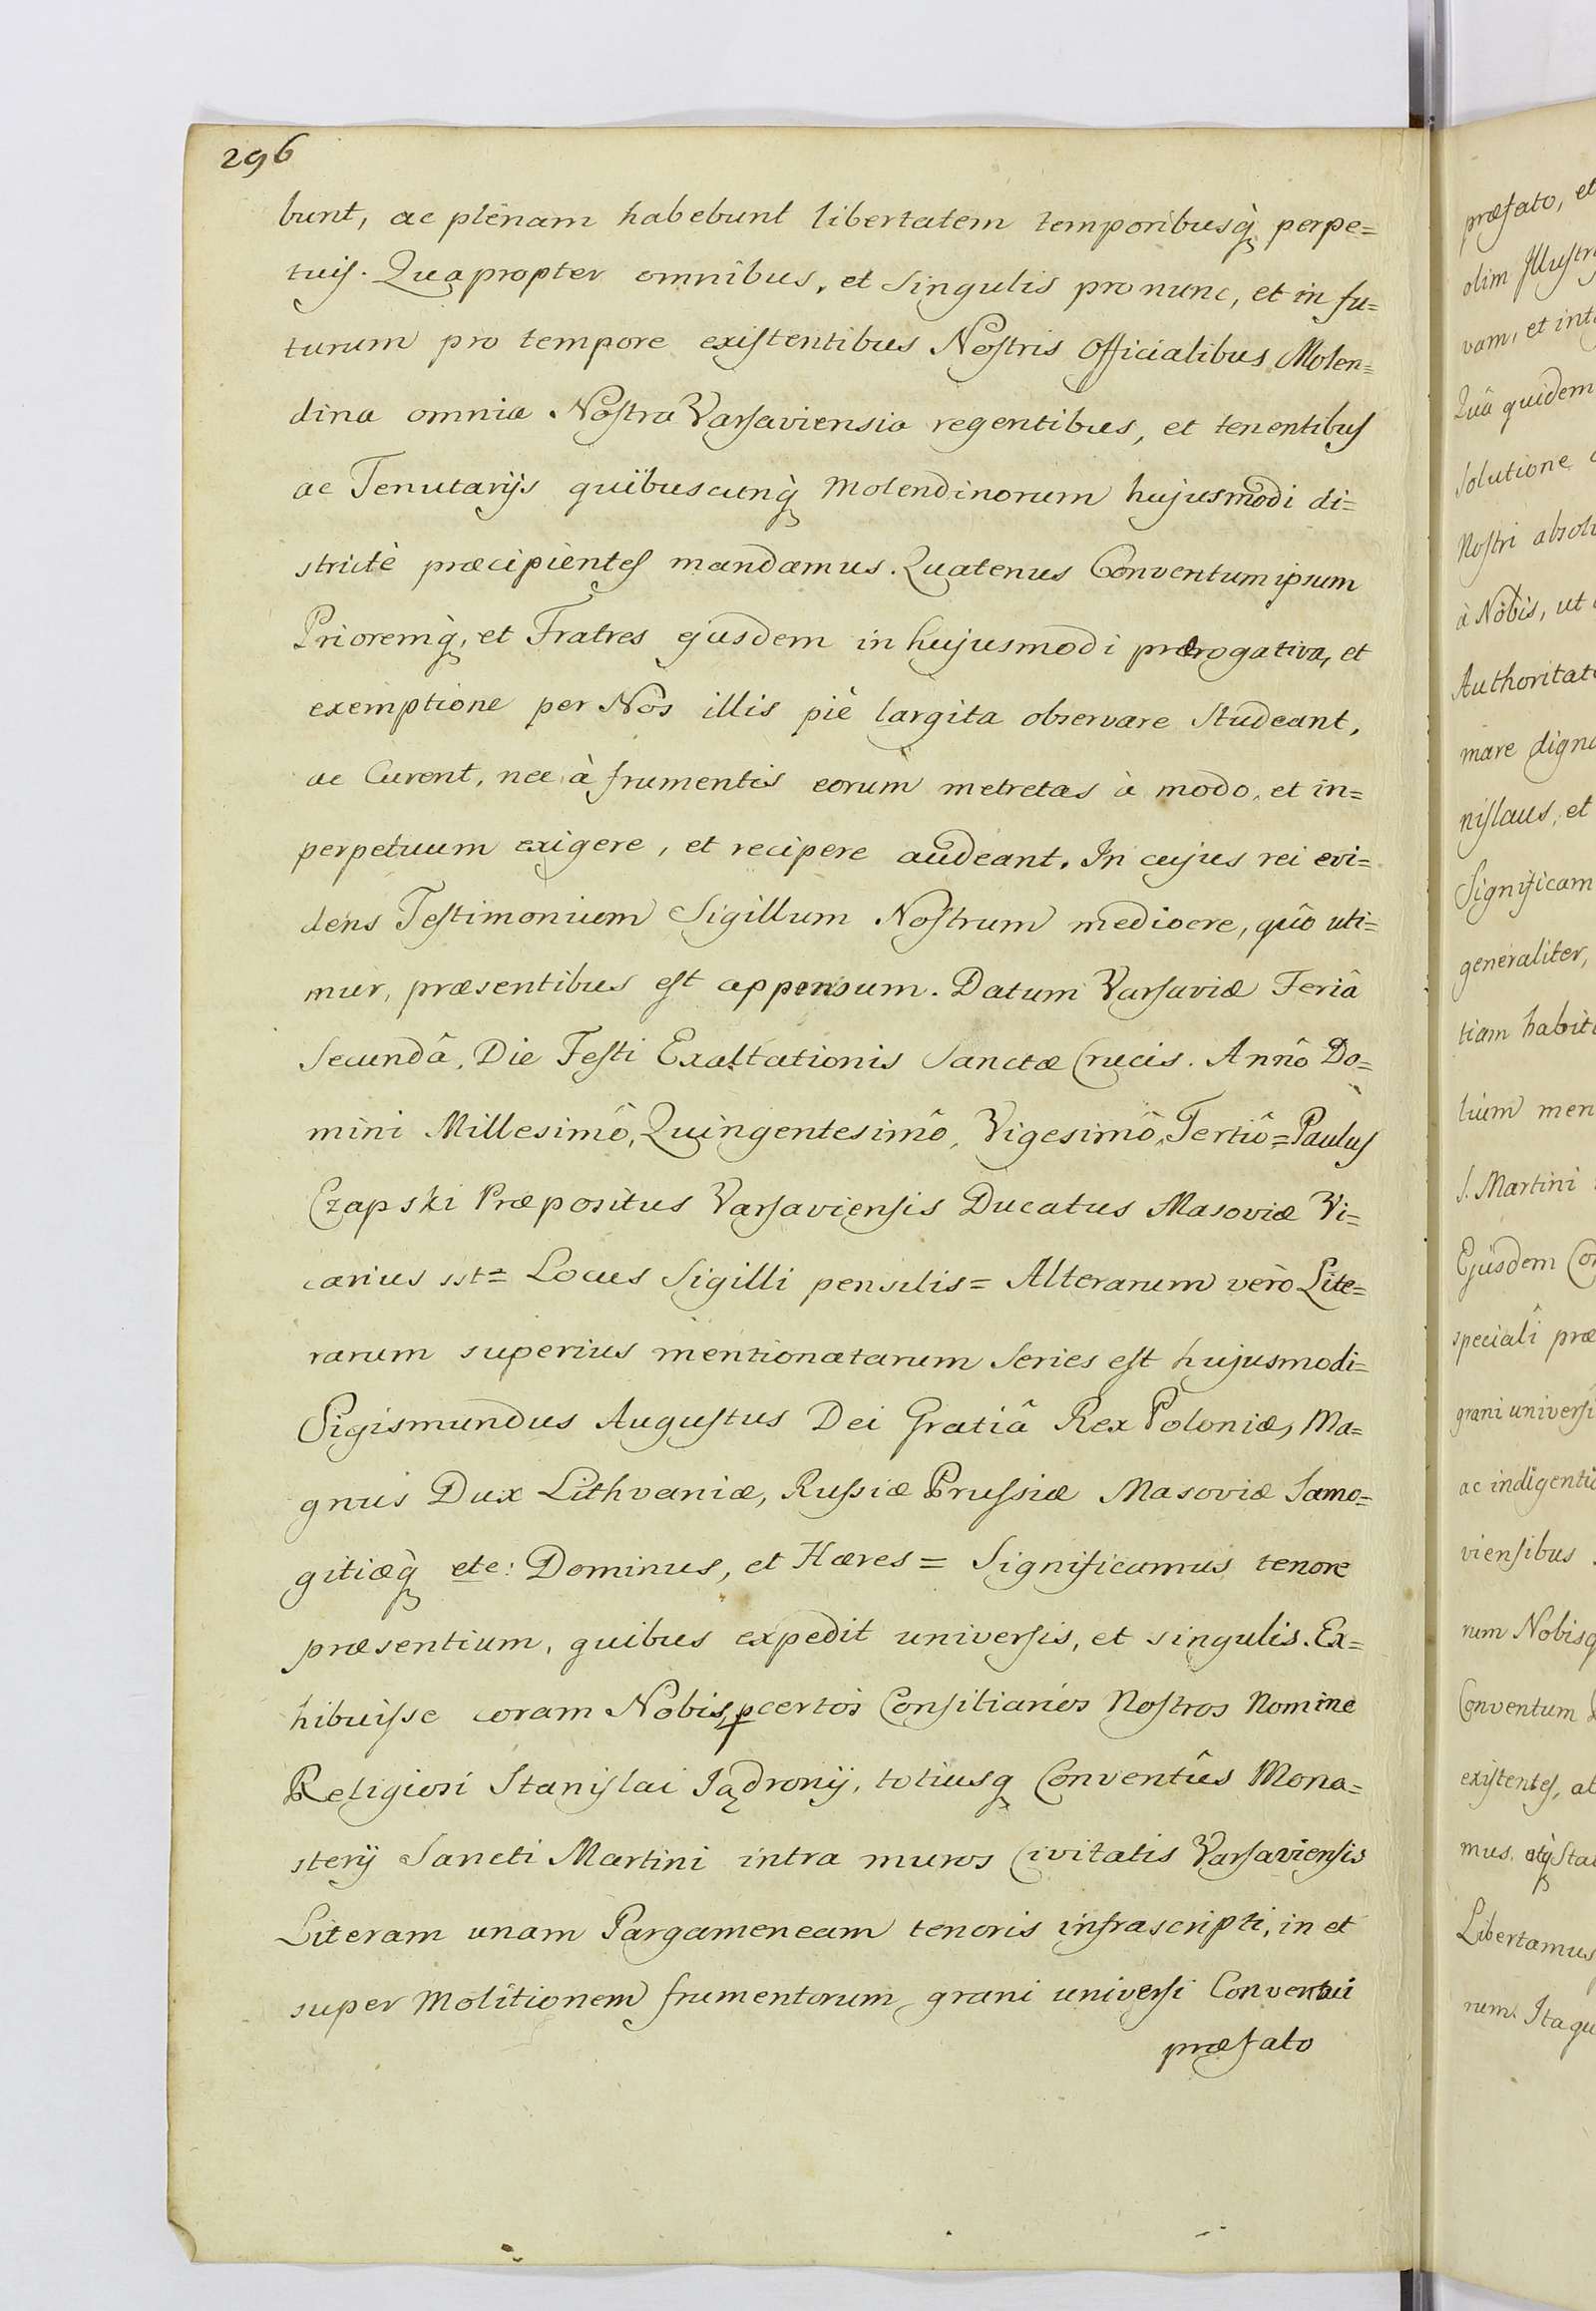 296
bunt, ac plenam habebunt libertatem temporibusq̀ perpe=
tuis. Quapropter omnibus, et Singulis pro nunc, et in fu=
turum pro tempore existentibus Nostris Officialibus Molen=
dina omnia Nostra Varsaviensia regentibus, et tenentibus
ac Tenutarijs quibuscunq̀ Molendinorum hujusmodi di=
strictè præcipientes mandamus. Quatenus Conventum ipsum
Prioremq̀, et Fratres ejusdem in hujusmodi prærogativa, et
exemptione per Nos illis piè largita observare Studeant,
ac Curent, nec à frumentis eorum metretas à modo, et in=
perpetuum exigere, et recipere audeant. In cujus rei evi=
dens Testimonium Sigillum Nostrum mediocre, quô uti=
mur, præsentibus est appensum. Datum Varsaviæ Feriâ
Secundâ, Die Festi Exaltationis Sanctæ Crucis. Annô Do=
mini Millesimô, Quingentesimô, Vigesimô, Tertiô = Paulus
Czapski Præpositus Varsaviensis Ducatus Masoviæ Vi=
carius sst= Locus Sigilli pensilis = Alterarum verò Lite=
rarum superius mentionatarum Series est hujusmodi=
Sigismundus Augustus Dei Gratiâ Rex Poloniæ, Ma=
gnus Dux Lithvaniæ, Russiæ Prussiæ Masoviæ Samo=
gitiæq̀ etc: Dominus, et Hæres = Significamus tenore
præsentium, quibus expedit universis, et singulis. Ex=
hibuisse coram Nobis, p certos Consiliarios Nostros Nomine
Religiosi Stanislai Jądronij, totiusq Conventûs Mona=
sterij Sancti Martini intra muros Civitatis Varsaviensis
Literam unam Pargameneam tenoris infrascripti, in et
super Molitionem frumentorum grani universi Conventui
præfato
præfato, et
olim Illustri
vam, et int
Quâ quidem
Solutione
Nostri absol
à Nobis, ut
Authoritat
mare digna
nislaus, et
Significam
generaliter,
tiam habit
lium men
S. Martini
Ejusdem Co
speciali præ
grani universi
ac indigentia
viensibus
rum Nobisq
Conventum
existentes, a
mus, atq̀ Sta
Libertamus
rum. Ita qu